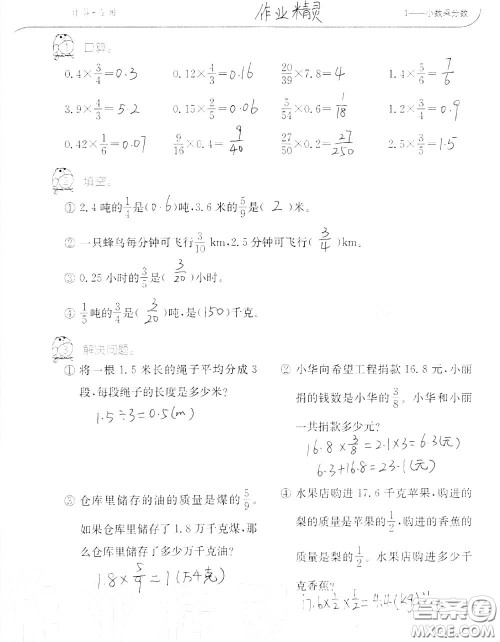 作业精灵 1——小数乘分数
1 口算。
0.4×3/4=0.3 0.12×4/3=0.16 20/39×7.8=4 1.4×5/6=7/6
3.9×4/3=5.2 0.15×2/5=0.06 5/54×0.6=1/18 1.2×3/4=0.9
0.42×1/6=0.07 9/16×0.4=9/40 27/50×0.2=27/250 2.5×3/5=1.5
2 填空。
① 2.4吨的1/4是(0.6)吨,3.6米的5/9是(2)米。
② 一只蜂鸟每分钟可飞行3/10 km,2.5分钟可飞行(3/4)km。
③ 0.25小时的3/5是(3/20)小时。
④ 1/5吨的3/4是(3/20)吨,是(150)千克。
3 解决问题。
① 将一根1.5米长的绳子平均分成3
段,每段绳子的长度是多少米?
1.5÷3=0.5(m)
② 小华向希望工程捐款16.8元,小丽
捐的钱数是小华的3/8。小华和小丽
一共捐款多少元?
16.8×3/8=2.1×3=6.3(元)
6.3+16.8=23.1(元)
③ 仓库里储存的油的质量是煤的5/9。
如果仓库里储存了1.8万千克煤,那
么仓库里储存了多少万千克油?
1.8×5/9=1(万千克)
④ 水果店购进17.6千克苹果,购进的
梨的质量是苹果的1/2,购进的香蕉的
质量是梨的1/2。水果店购进多少千
克香蕉?
17.6×1/2×1/2=4.4(kg)
答案圈